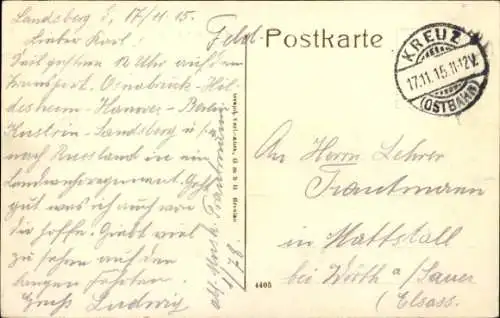 Landsberg, 17/11 15.
Lieber Karl!
Seit gestern 12 Uhr auf dem
Transport. Osnabrück-Hil-
desheim-Hannover-Berlin
Küstrin-Landsberg u. s. w.
nach Russland in ein
Landwehrregiment. Geht
gut was ich auch von
dir hoffe. Giebt viel
zu sehen auf den
langen Fahrten.
Gruß Ludwig
Feld
Postkarte
KREUZ
17.11.15.11-12V.
(OSTBAHN)
An Herrn Lehrer
Trautmann
in Mattstall
bei Wörth a/Sauer
(Elsass.
4405